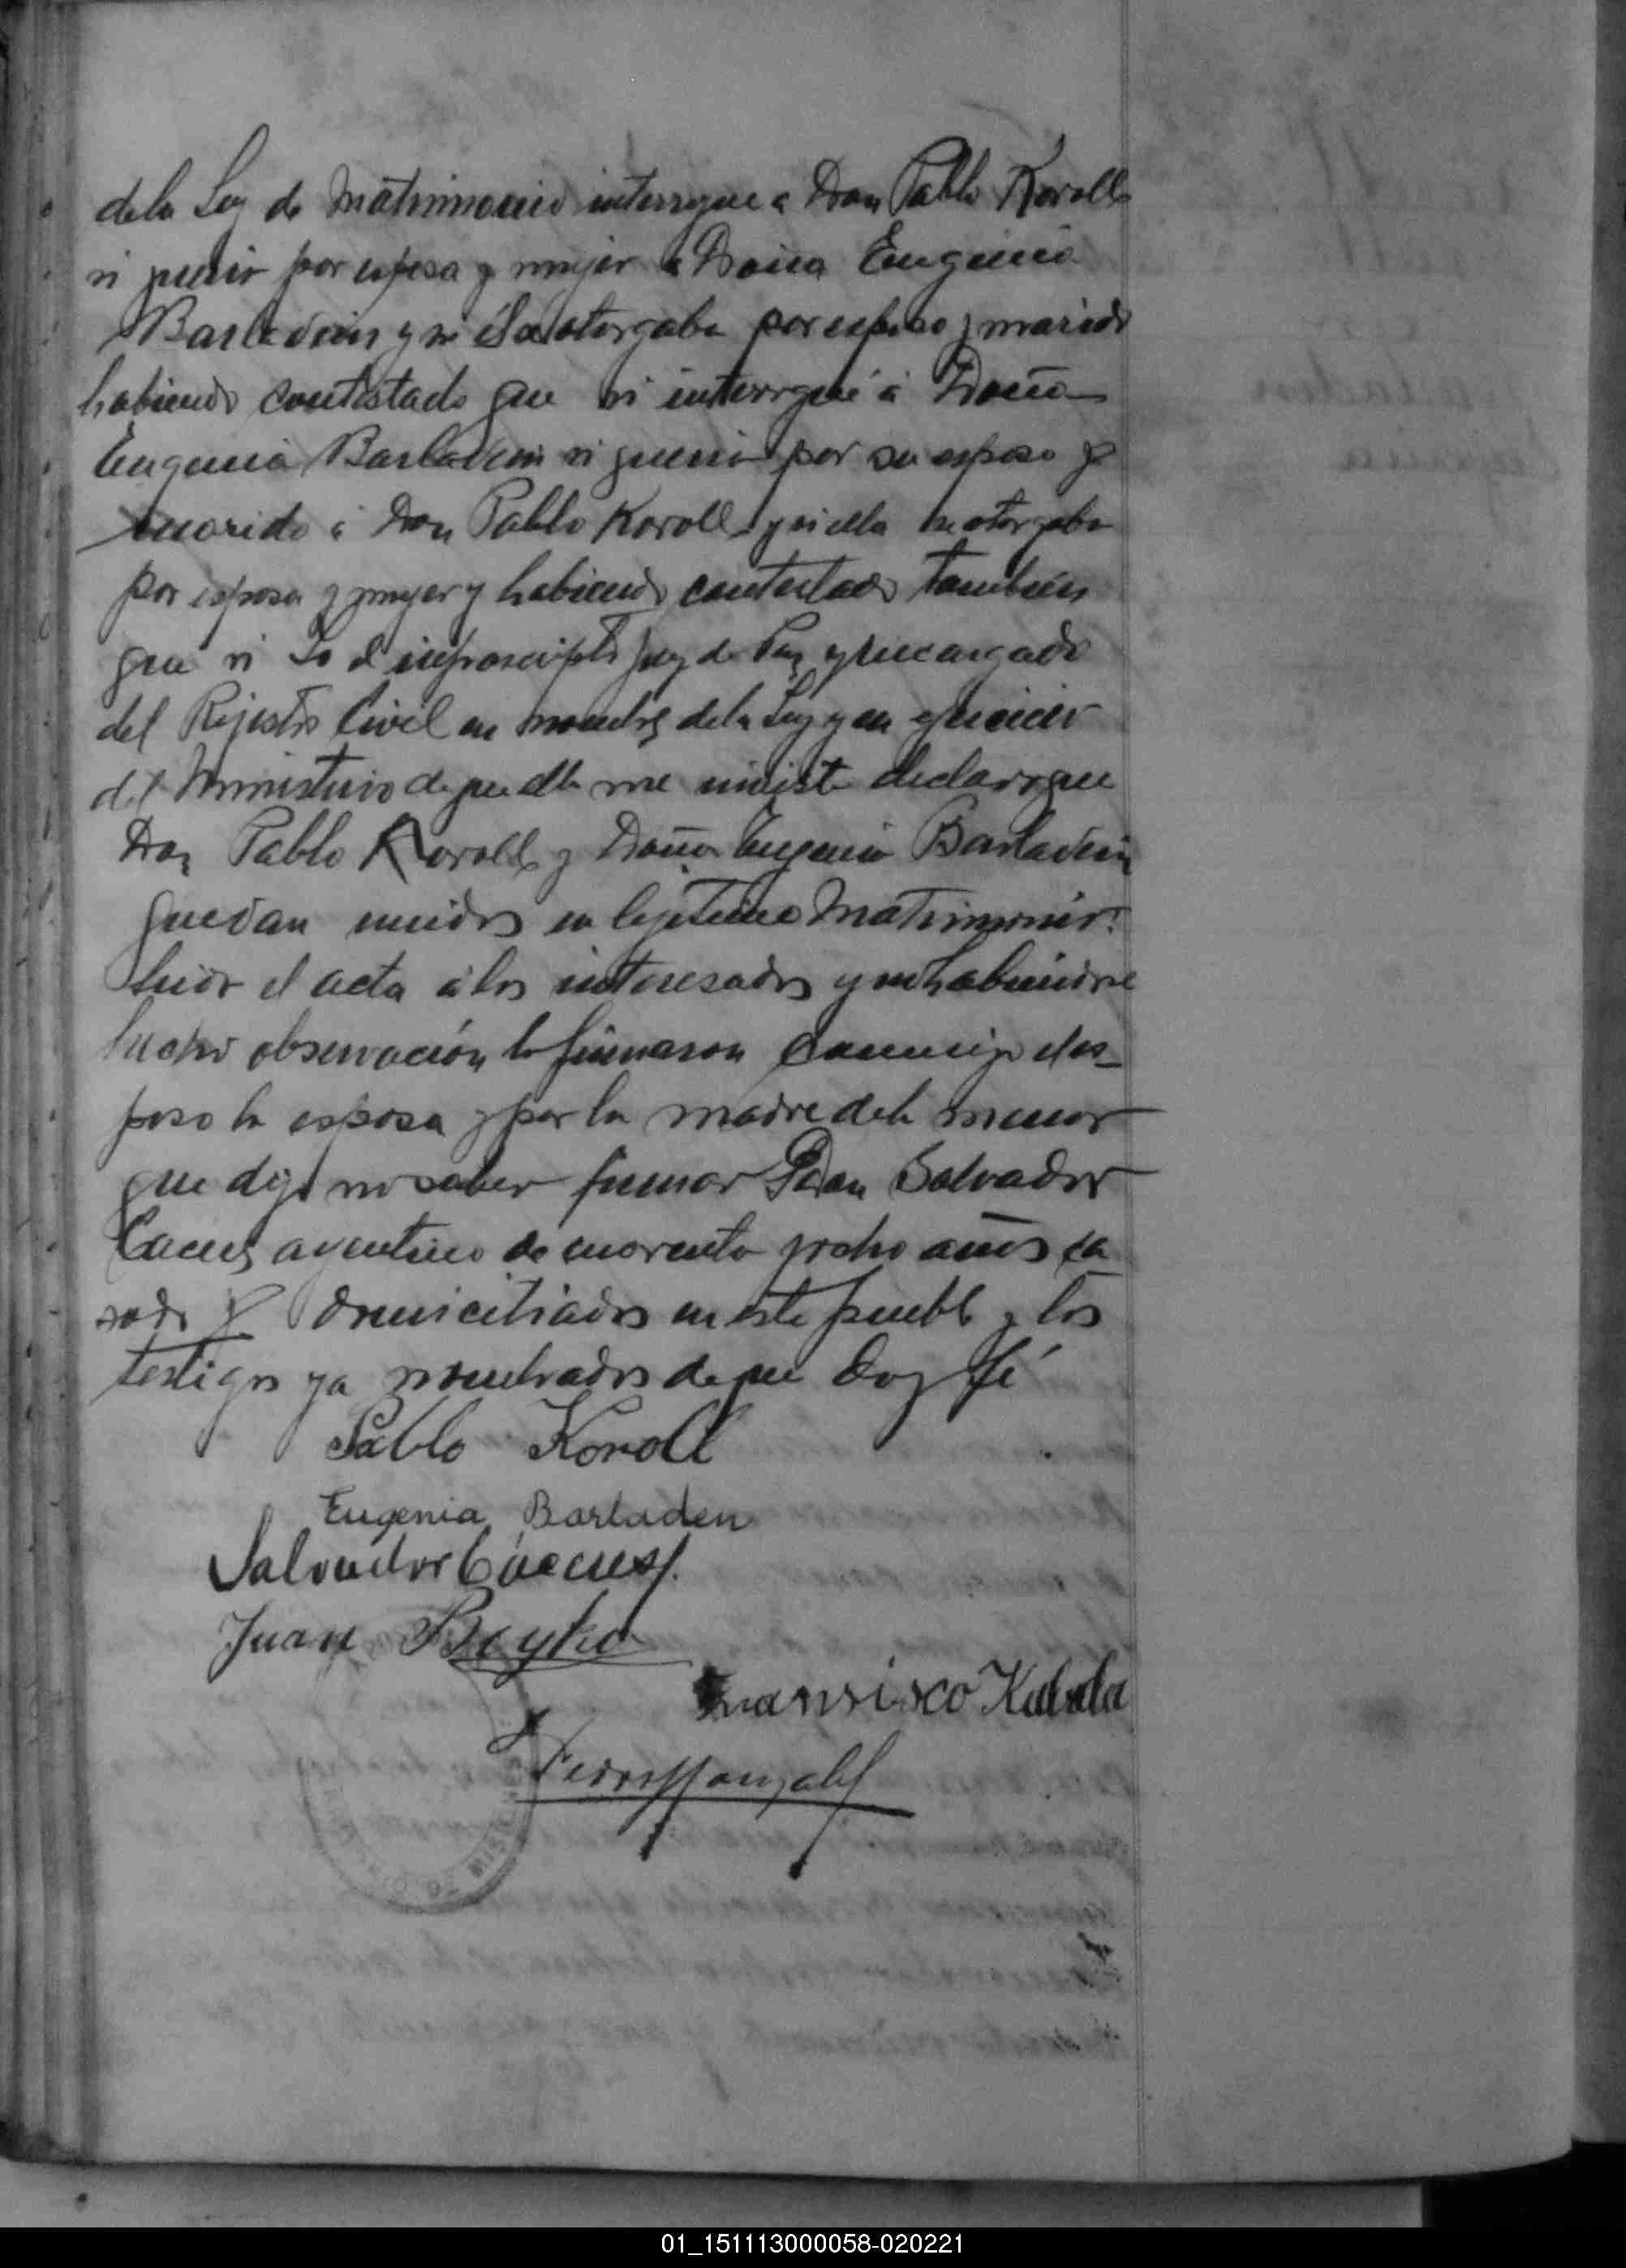 dela Ley de Matrimonio interrogue a Don Pablo Koroll
si queria por esposa y mujer a Doña Eugenia
Barladein y si él se otorgaba por esposo y marido
habiendo contestado que si interrogué á Doña
Eugenia Barladein si queria por su esposo y
marido á Don Pablo Koroll y si ella se otorgaba
por esposa y mujer y habiendo contestado tambien
que si Yo el infrascripto Juez de Paz y encargado
del Rejistro Civil en nombre dela Ley y en ejercicio
del Ministerio de que ella me inviste declaro que
Don Pablo Koroll y Doña Eugenia Barladein
quedan unidos en lejitimo Matrimonio.
Leida el acta á los interesados y no habiendose
hecho observación la firmaron conmigo el es-
poso la esposa y por la madre dela menor
que dijo no saber firmar Don Salvador
argentino de cuarenta y ocho años ca
sado y domiciliados en este pueblo y los
testigos ya nombrados de que doy fé
Pablo Koroll
Eugenia Barladen
Salvador
Juan Boyko
Fransisco Kubala
Pedro Gonzalez
DE MISIONES
01_151113000058-020221